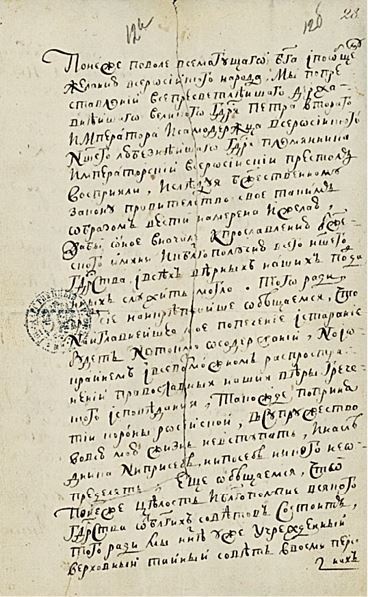 12и 12б 23
Понеже поволе всемогущагѡ бга ıпообще
желанию всеросиского народа, Мы попре
ставлениı всепресветлеишаго держа
внѣишаго великого гдря Петра второго
Императора ıсамодержца всеросиского
Ншего любезнѣишаго гдря племянника
Императорскии всеросискиı престолъ
восприяли, ıследуя бжественному
закону правителство свое такимъ
образомъ вести намерена ıжелаю,
дабы оное вначале кпрославлению бже
ского ımяни ıкблагополучию всего ншего
гдрства ıвсѣхъ вѣрныхъ нашихъ подда
нныхъ служить могло. Того ради,
сие наикрепчаише обещаемся, что
Наıглавнеıшее мое попечение ıстарание
будетъ нетокмо ѡсодержаниı, Ноıѡ
краинемъ ıвсевозможномъ распростра
нениı православныя нашия вѣры грече
ского ıсповедания, такожде поприня
тиı короны росиискоı, Всупружество
вовсю мою жизнь невступать, ıнаслѣ
дника ниприсебѣ, нипосебѣ никого нео
пределять. Еще ѡбещаемся, что
понеже целость ıблгополучие всякого
гдрства ѿблагихъ совѣтовъ состоитъ,
того ради мы ннѣ уже учрежденныи
верховныи таиныи совѣтъ ввосми пер
сонахъ